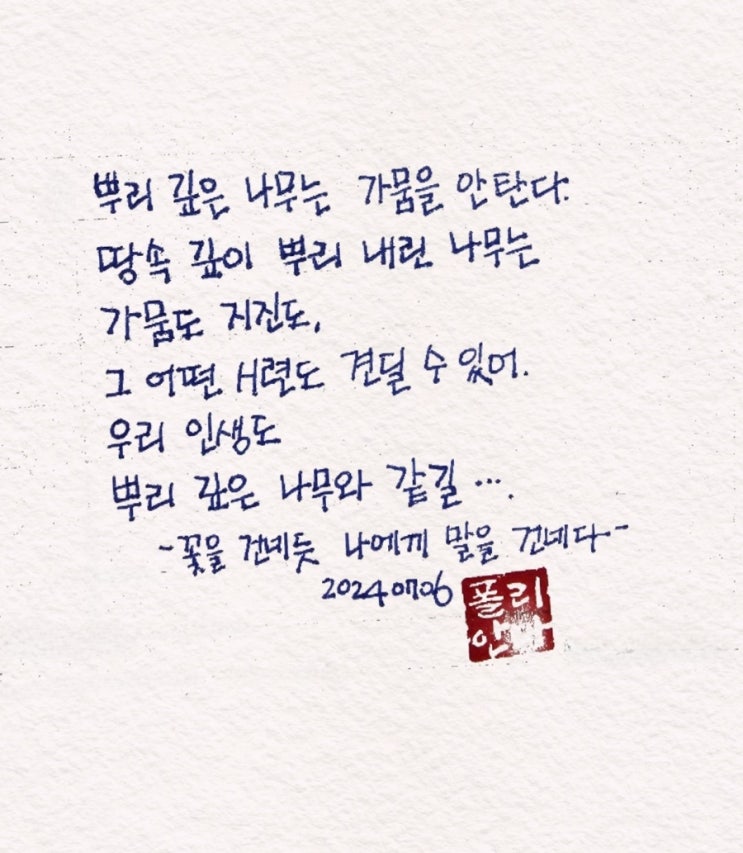 뿌리 깊은 나무는 가뭄을 안 탄다.
땅속 깊이 뿌리 내린 나무는
가뭄도 지진도,
그 어떤 시련도 견딜 수 있어.
우리 인생도
뿌리 깊은 나무와 같길 ….
-꽃을 건네듯 나에게 말을 건네다-
2024 07 06
폴리
아빠